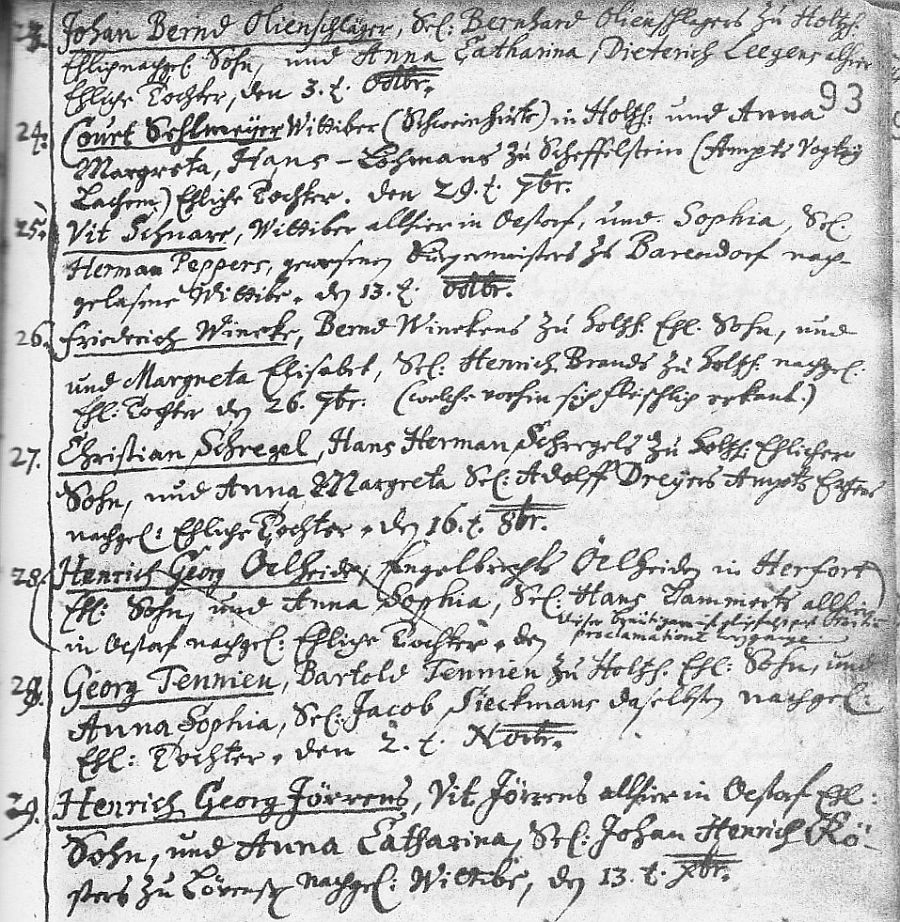 23. Johan Bernd Olienschläger, Sel: Bernhard Olienschlägers zu Holtzh.
Ehlich nachgel. Sohn, und Anna Catharina, Dieterich Leegens alhier
Ehliche Tochter, den 3. t. Octbr.
93
24. Court Sehlmeyer Wittiber (Schweinhirte) in Holtzh: und Anna
Margreta, Hans Lohmans zu Scheffelstein (Ampts Vogtey
Lachem) Ehliche Tochter. den 29. t. 7br.
25. Vit Schnare, Wittiber allhier in Oestorf, und Sophia, Sel.
Herman Peppers, gewesenen Bürgermeisters zu Barendorf nach-
gelasene Wittibe. den 13. t. Octbr.
26. Friedrich Wineke, Bernd Winekens zu Holtzh. Ehl. Sohn, und
und Margreta Elisabet, Sel: Henrich Brands zu Holtzh. nachgel.
Ehl: Tochter den 26. 7br. (welche vorhin sich fleischlich erkant.)
27. Christian Schregel, Hans Herman Schregels zu Holtzh: Ehlicher
Sohn, und Anna Margreta Sel: Adolff Dreyers Ampts
nachgel: Ehliche Tochter. den 16. t. 8br.
28. Henrich Georg Oelheide, Engelbrechts Oelheiden in Herfort
Ehl: Sohn, und Anna Sophia, Sel: Hans Lammerts allhier
in Oestorf nachgel: Ehliche Tochter. den
Dieser Bräutigam ist
proclamationt
28. Georg Tennien, Bartold Tennien zu Holtzh. Ehl: Sohn, und
Anna Sophia, Sel: Jacob Sieckmans daselbsten nachgel:
Ehl: Tochter. den 2. t. Novbr.
29. Henrich Georg Jörrens, Vit Jörrens allhier in Oestorf Ehl:
Sohn, und Anna Catharina, Sel: Johan Henrich Kö-
sters zu nachgel: Wittibe, den 13. t. Xbr.